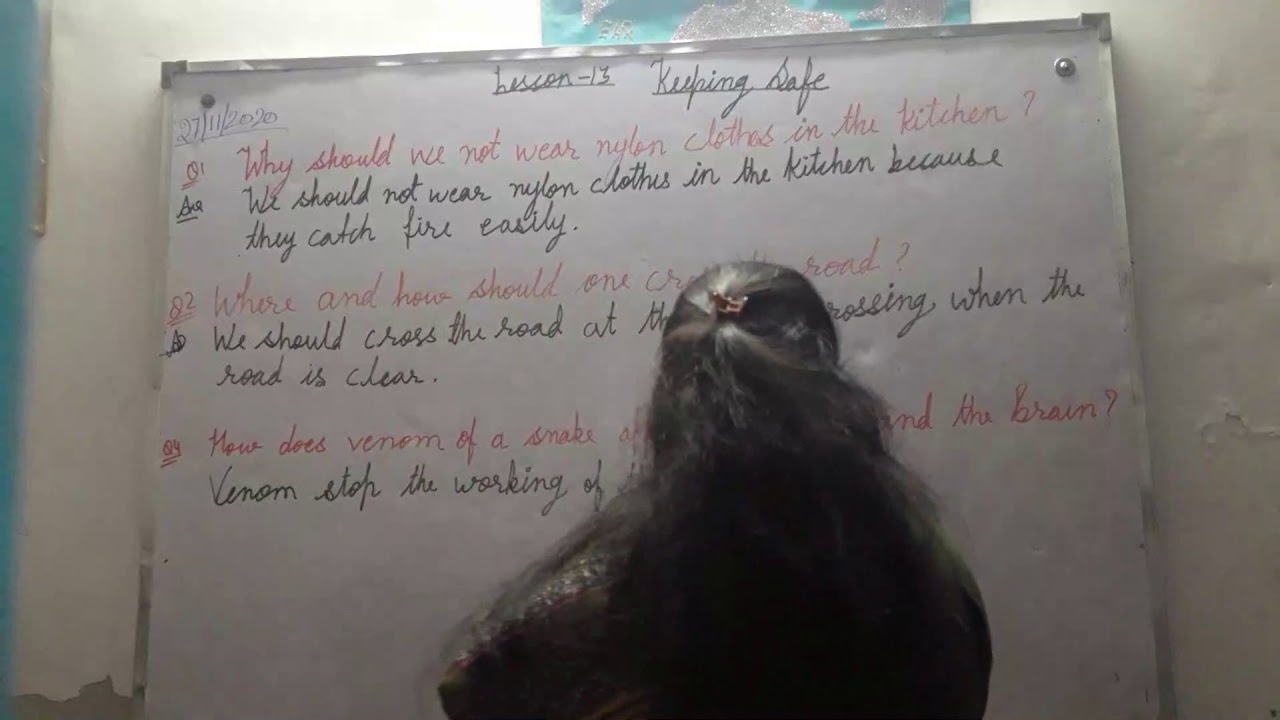 Lesson-13 Keeping Safe
27/11/2020
Q1 Why should we not wear nylon clothes in the kitchen?
Ans We should not wear nylon clothes in the kitchen because
they catch fire easily.
Q2 Where and how should one road?
We should cross the road at when the
road is clear.
Q4 How does venom of a snake and the brain?
Venom stop the working of